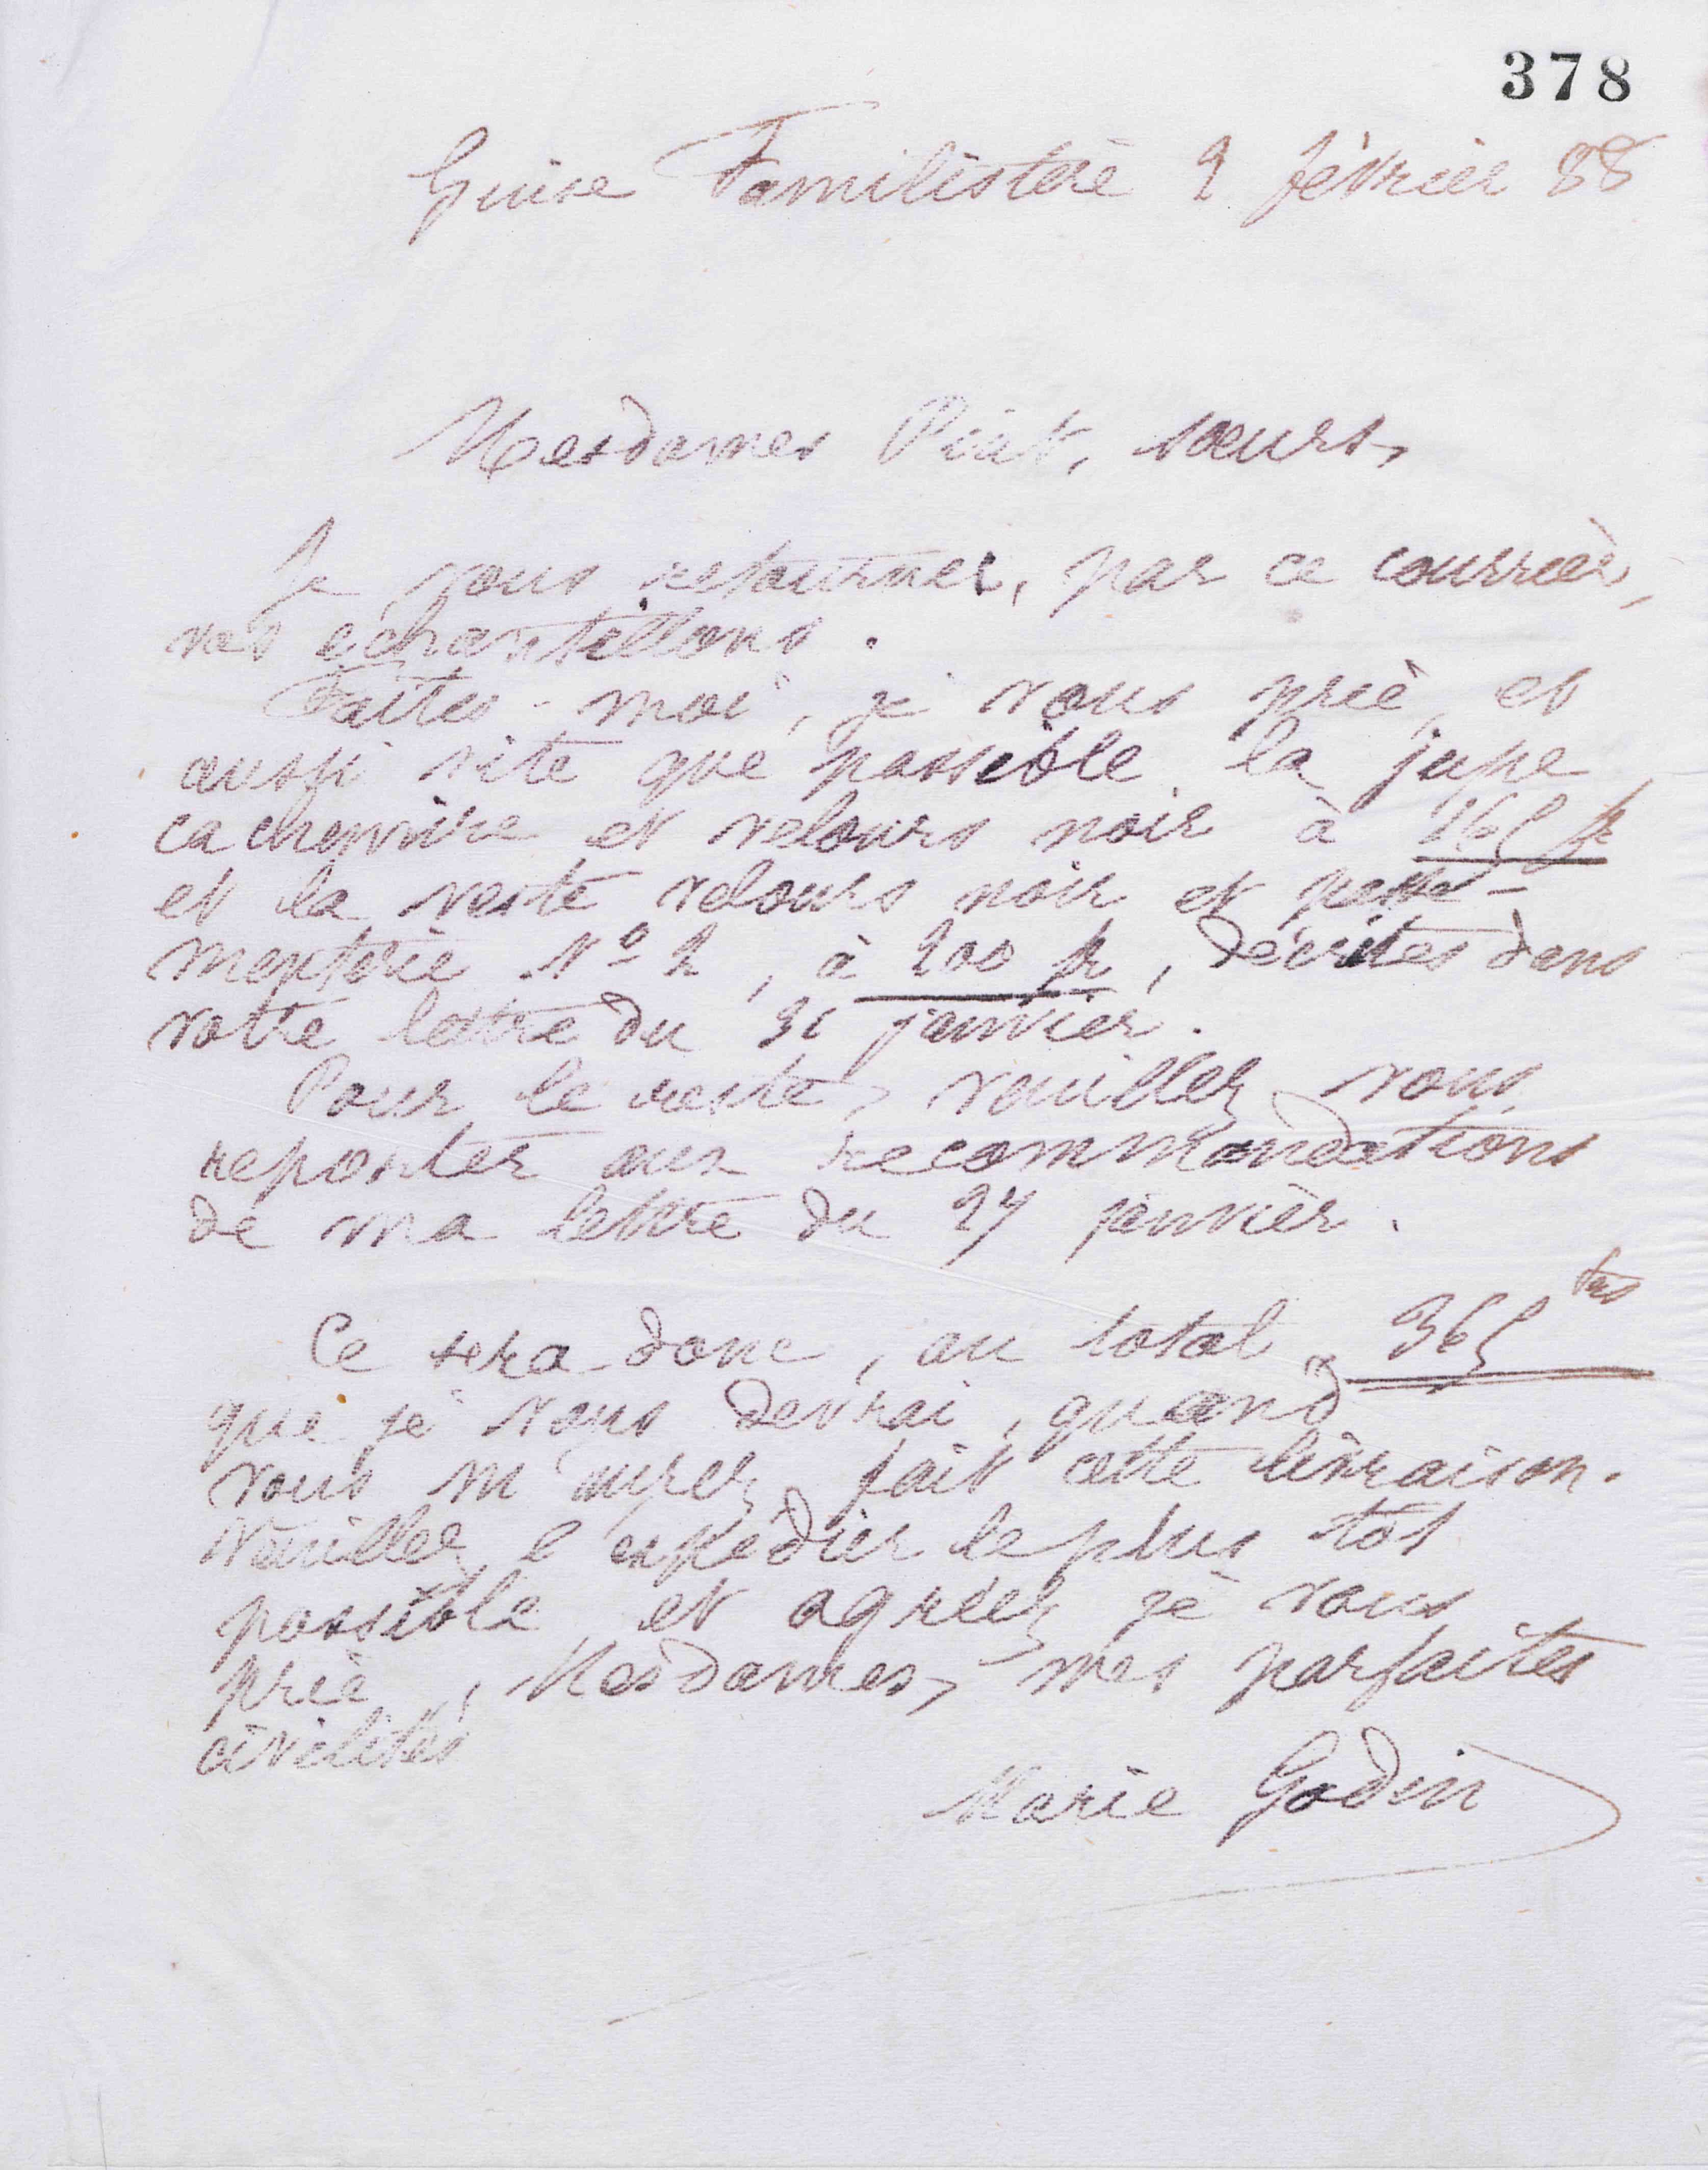 378
Guise Familistère 2 février 88
Mesdames Piat, sœurs,
Je vous retourne, par ce courrier,
vos échantillons.
Faites-moi, je vous prie, et
aussi vite que possible la jupe
cachemire et velours noir à 165 fr
et la veste velours noir et passe-
menterie No 2, à 200 fr, décrites dans
votre lettre du 31 janvier.
Pour le reste, veuillez vous
reporter aux recommandations
de ma lettre du 27 janvier.
Ce sera donc, au total, 365 frs
que je vous devrai, quand
vous m'aurez fait cette livraison.
Veuillez l'expédier le plus tôt
possible et agréez je vous
prie, Mesdames, mes parfaites
civilités
Marie Godin